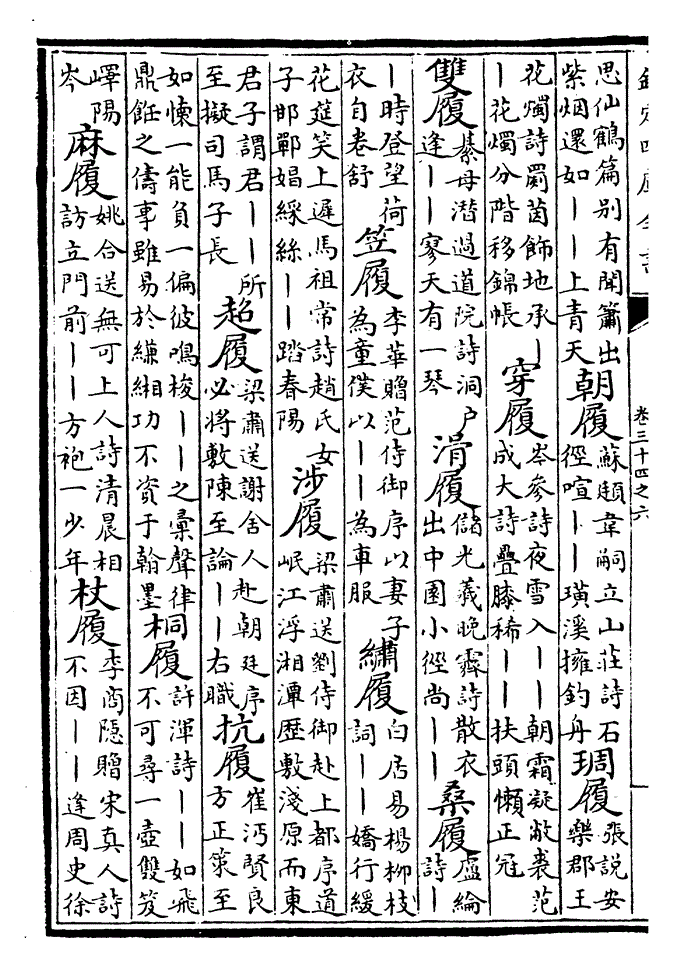 欽定四庫全書
卷三十四之六
思仙鶴篇别有聞簫出紫烟還如丨丨上青天朝履蘇頲韋嗣立山莊詩石徑喧丨丨璜溪擁釣舟琱履張説安樂郡王
花燭詩罽茵飾地承丨丨花燭分階移錦帳穿履岑參詩夜雪入丨丨朝霜凝敝裘范成大詩疊膝稀丨丨扶頭懶正冠
雙履綦母潛過道院詩洞户逢丨丨寥天有一琴滑履儲光羲晚霽詩散衣出中園小徑尚丨丨桑履盧綸詩丨
丨時登望荷衣自卷舒笠履李華贈范侍御序以妻子為童僕以丨丨為車服繡履白居易楊柳枝詞丨丨嬌行緩
花筵笑上遲馬祖常詩趙氏女子邯鄲娼綵絲丨丨踏春陽涉履梁肅送劉侍御赴上都序道岷江浮湘潭歴敷淺原而東
君子謂君丨丨所至擬司馬子長超履梁肅送謝舍人赴朝廷序必將敷陳至論丨丨右職抗履崔沔賢良方正策至
如懷一能負一偏彼鳴梭丨丨之彙聲律鼎飪之儔事雖易於縑緗功不資于翰墨桐履許渾詩丨丨如飛不可尋一壺雙笈
嶧陽岑麻履姚合送無可上人詩清晨相訪立門前丨丨方袍一少年杖履李商隱贈宋真人詩不因丨丨逢周史徐